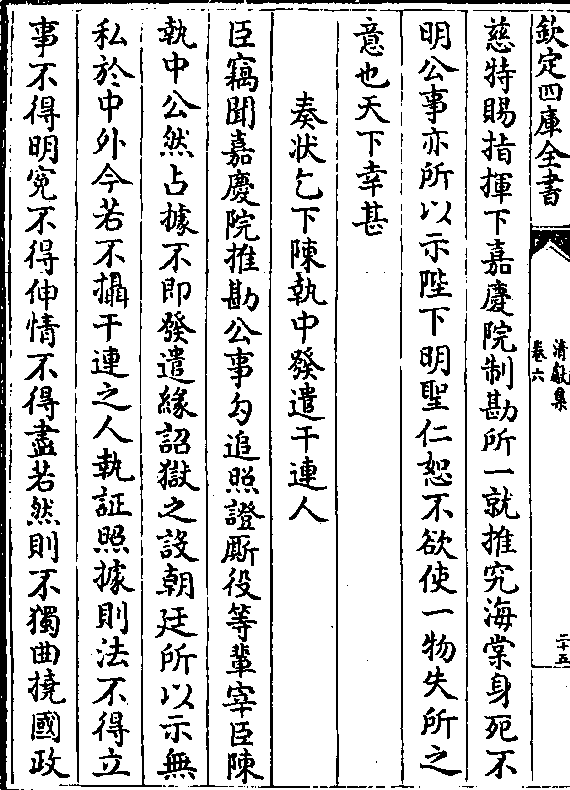 欽定四庫全書
清獻集
卷六
二十五
慈特賜指揮下嘉慶院制勘所一就推究海棠身死不
明公事亦所以示陛下明聖仁恕不欲使一物失所之
意也天下幸甚
奏狀乞下陳執中發遣干連人
臣竊聞嘉慶院推勘公事勾追照證厮役等輩宰臣陳
執中公然占據不即發遣緣詔獄之設朝廷所以示無
私於中外今若不攝干連之人執証照據則法不得立
事不得明寃不得伸情不得盡若然則不獨曲撓國政